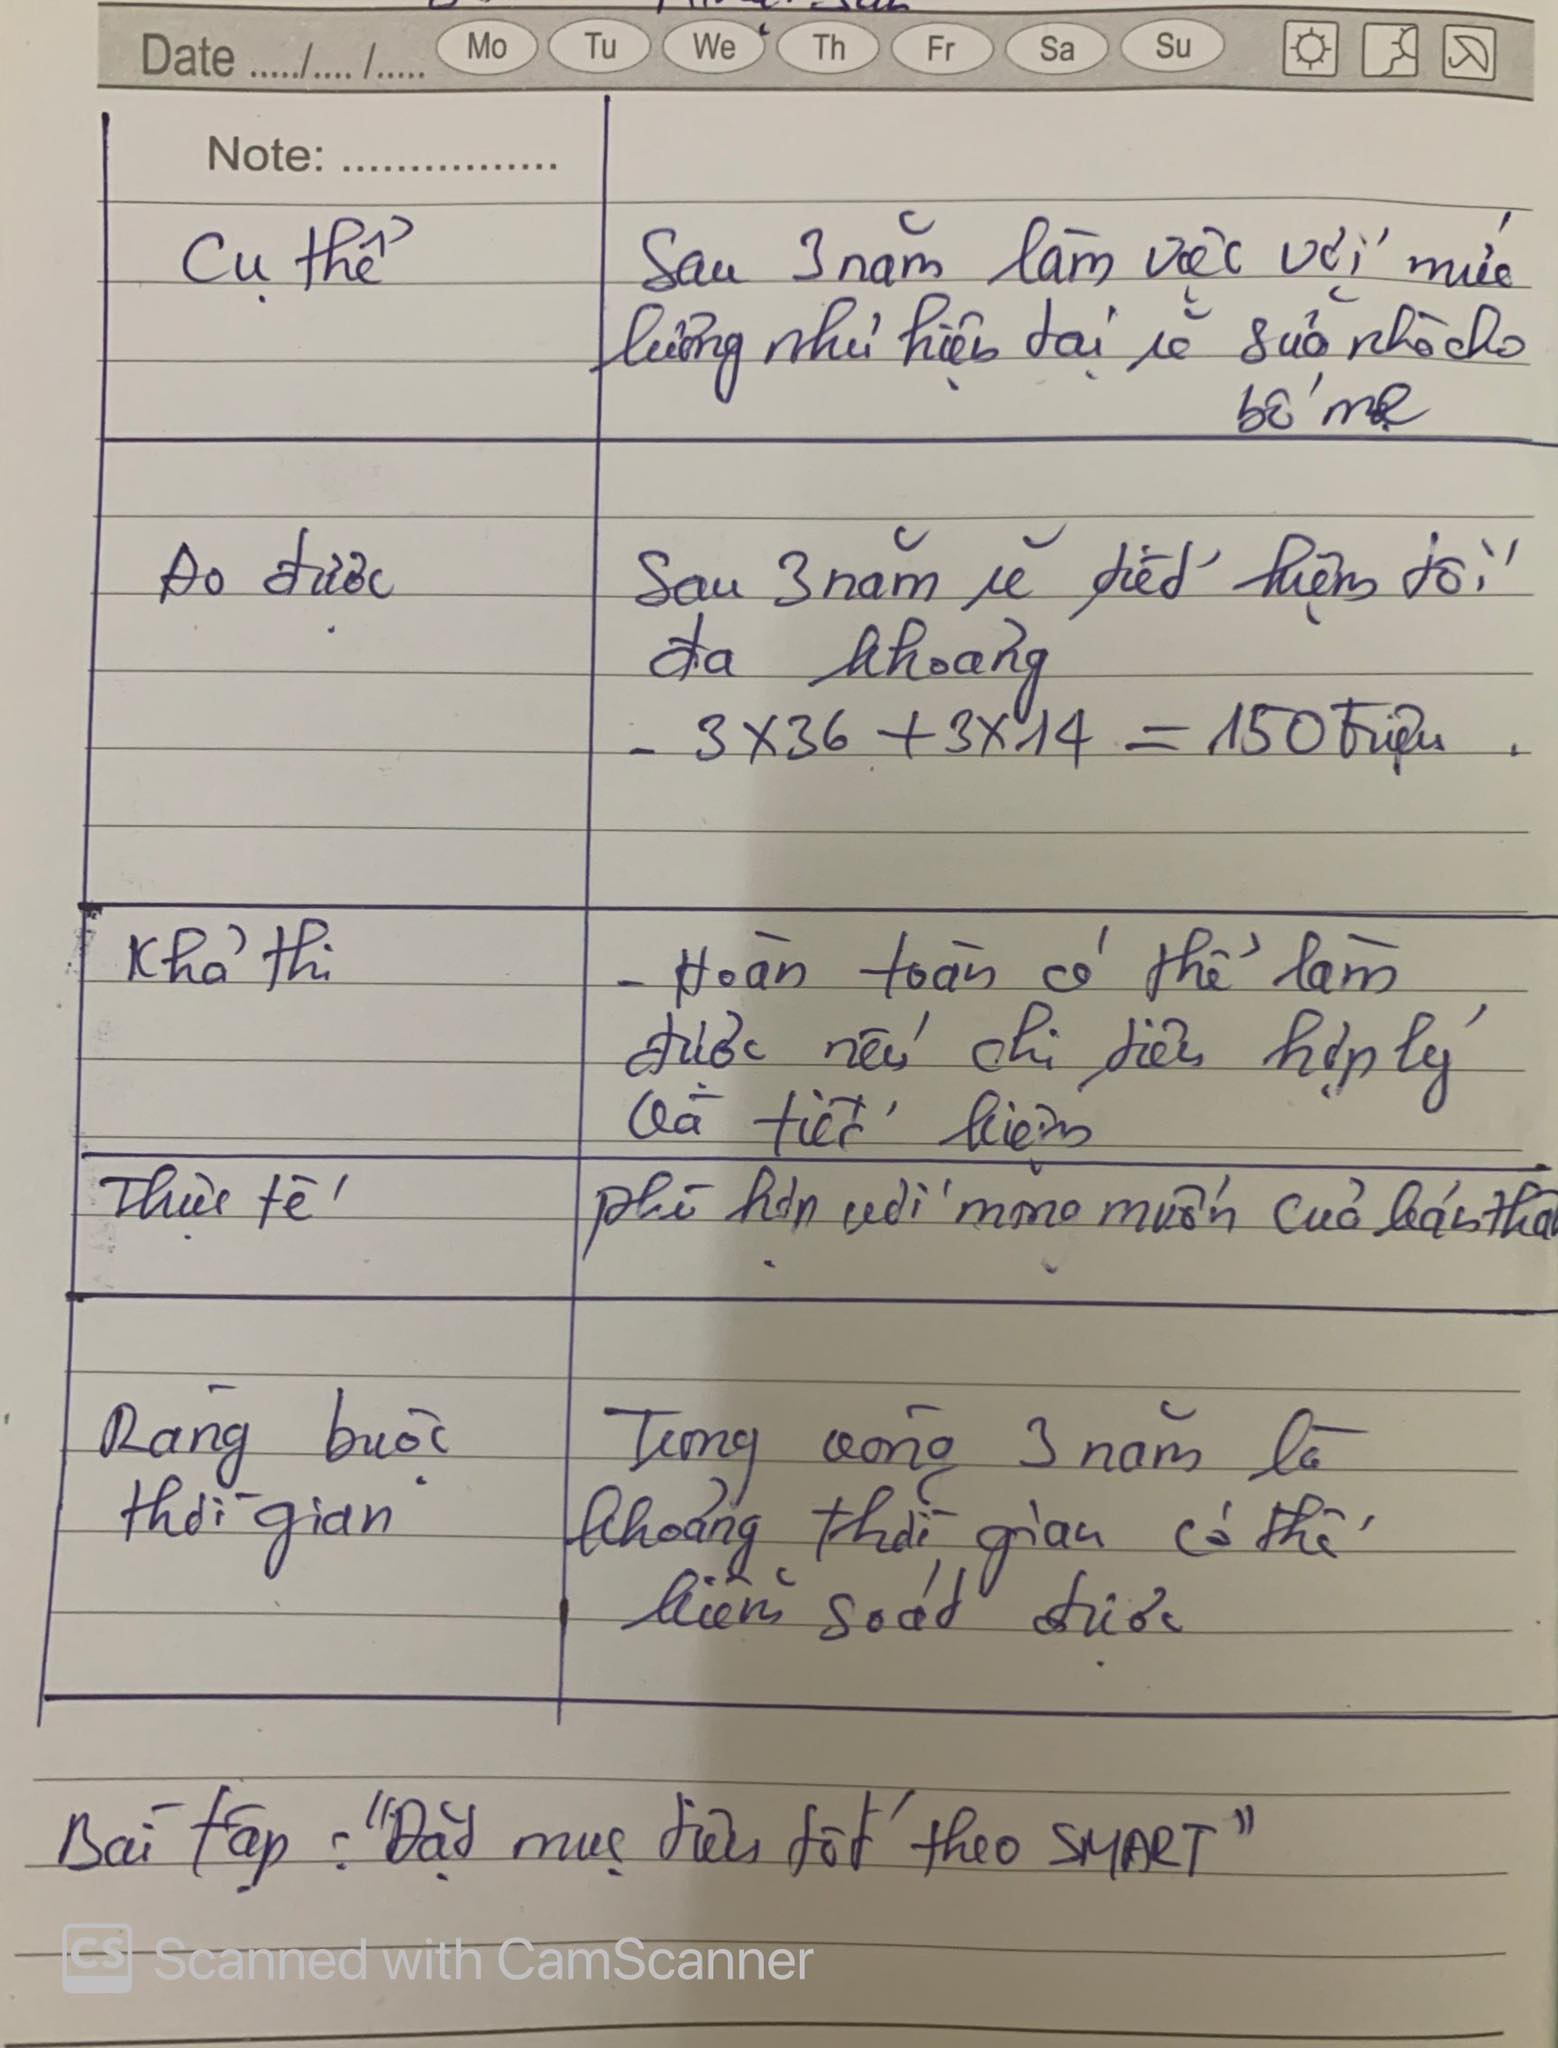 Date ...../..../..... Mo Tu We Th Fr Sa Su
Note: ................
Cụ thể
Sau 3 năm làm việc với mức
lương như hiện tại sẽ sửa nhà cho
bố mẹ
Đo được
Sau 3 năm sẽ tiết kiệm tối
đa khoảng
- 3 x 36 + 3 x 14 = 150 Triệu .
Khả thi
- Hoàn toàn có thể làm
được nếu chi tiêu hợp lý
và tiết kiệm
Thực tế
phù hợp với mong muốn của bản thân
Ràng buộc
thời gian
Trong vòng 3 năm là
khoảng thời gian có thể
kiểm soát được
Bài tập : "Đặt mục tiêu tốt theo SMART"
CS Scanned with CamScanner